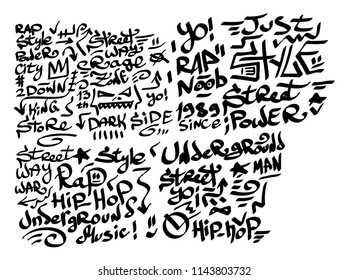 RAP
Style
Power
City
2 DOWN
KING
STORE
Street
WAY
Rage
ZINE
13th
yo!
DARK SIDE
yo!
RAP
Noob
1989
SINCE
JUST
STYLE
Street
POWER
Street
WAY
WARS
Style
RAP"
HIP-HOP
UnderGround
Music!
UndeRGROUND
Street
MAN
yo!
Hip-Hop
shutterstock
IMAGE ID: 1143803732
www.shutterstock.com